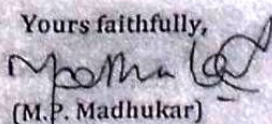 Yours faithfully,
(M.P. Madhukar)